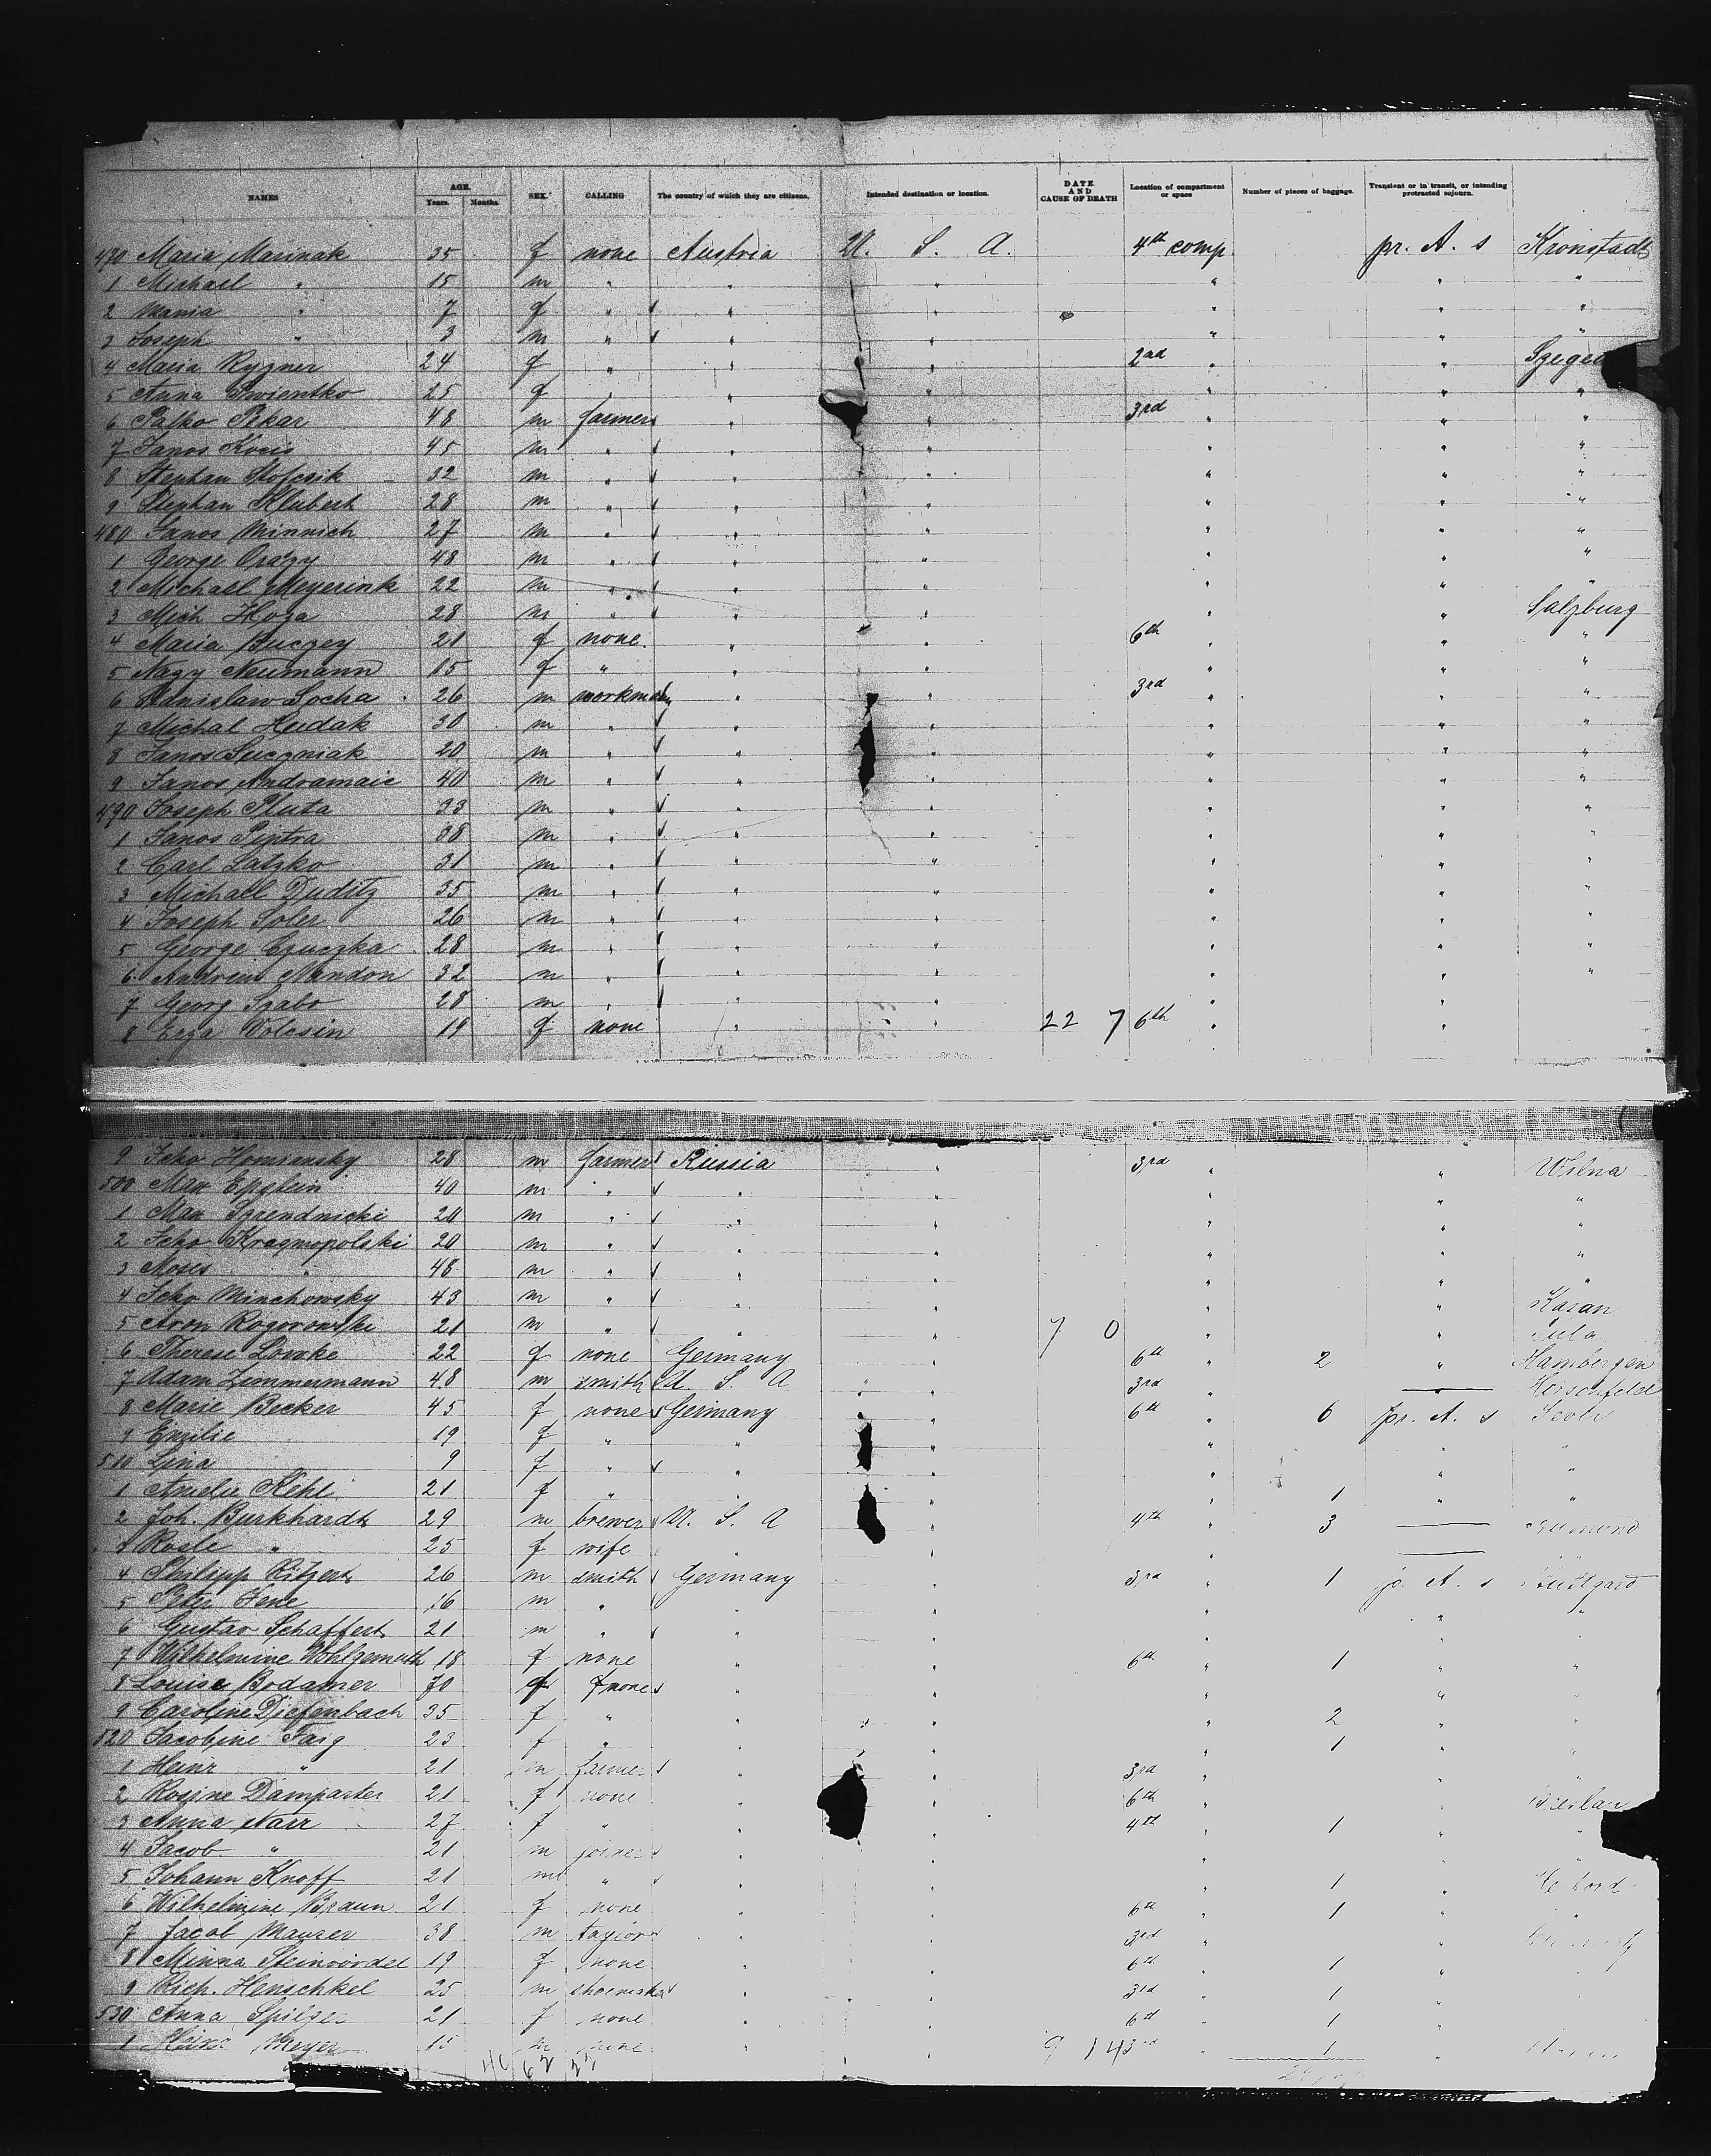 NAMES AGE. Years. Months. SEX. CALLING The country of which they are citizens. Intended destination or location. DATE AND CAUSE OF DEATH Location of compartment or space Number of pieces of baggage. Transient or in transit, or intending protracted sojourn.
470 Maria Marinak 35 f none Austria U. S. A. 4th comp. pr. A. s Kronstadt
1 Michael " 15 m " " " " " "
2 Maria " 7 f " " " " " "
3 Joseph " 3 m " " " " " "
4 Maria Ryzner 24 f " " " 2nd " "
5 Anna Swientko 25 f " " " " "
6 Palko Pekar 48 m farmer " " 3rd " " "
7 Janos Kocis 45 m " " " " " "
8 Stephan Stofcsik 32 m " " " " " "
9 Stephan Klubert 28 m " " " " " "
480 Janos Minnich 27 m " " " " " "
1 George Orazy 48 m " " " " " "
2 Michael Meyerink 22 m " " " " " "
3 Mich Hoza 28 m " " " " " Salzburg
4 Maria Buczey 21 f none " " 6th " " "
5 Nagy Neumann 15 f " " " " " "
6 Stanislaw Socha 26 m workman " " 3rd " " "
7 Michal Hudak 30 m " " " " " "
8 Janos Suczniak 20 m " " " " " "
9 Janos Andramaic 40 m " " " " " "
490 Joseph Pluta 33 m " " " " " "
1 Janos Piptra 38 m " " " " " "
2 Carl Latzko 31 m " " " " " "
3 Michael Duditz 35 m " " " " " "
4 Joseph Soler 26 m " " " " " "
5 George Czuczka 28 m " " " " " "
6 Andreas Mandon 32 m " " " " " "
7 Georg Szabo 28 m " " " " "
8 Erza Volesin 19 f none " " 22 7 6th " "
9 Icko Homiensky 28 m farmer Russia " 3rd " " Wilna
500 Max Epstein 40 m " " " " " "
1 Max Sprendnicki 20 m " " " " " "
2 Icko Krasnopolski 20 m " " " " " "
3 Moses " 48 m " " " " " "
4 Icko Minchowsky 43 m " " " " " Kasan
5 Aron Rogorowski 21 m " " " 7 0 " "
6 Therese Lowke 22 f none Germany " 6th " 2 " Hambergen
7 Adam Zimmermann 48 m smith U. S. A " 3rd "
8 Marie Becker 45 f none Germany " 6th " 6 pr. A. s
9 Emilie 19 f " " " " " "
510 Lina 9 f " " " " " "
1 Amelie Kehl 21 f " " " " 1 " "
2 Joh. Burkhardt 29 m brewer U. S. A 4th " 3
3 Rosle " 25 f wife " " "
4 Philipp Ritzert 26 m smith Germany " 3rd " 1 pr. A. s Stuttgard
5 Peter Jene 16 m " " " " " "
6 Gustav Schaffert 21 m " " " " " "
7 Wilhelmine Wohlgemuth 18 f none " " 6th " 1 " "
8 Louise Bodamer 70 f none " " " " "
9 Caroline Diefenbach 35 f " " " " 2 " "
520 Jacobine Faig 23 f " " " " 1 " "
1 Heinr " 21 m farmer " " 3rd " " "
2 Rosine Damparter 21 f none " " 6th " "
3 Anna Narr 27 f " " " 4th " 1 " "
4 Jacob " 21 m joiner " " " " "
5 Johann Knoff 21 m " " " " 1 "
6 Wilhelmine Braun 21 f none " " 6th " 1 " "
7 Jacob Maurer 38 m taylor " " 3rd " "
8 Minna Steinvördel 19 f none " " 6th " 1 "
9 Rich. Henschkel 25 m shoemaker " " 3rd " 1 "
530 Anna Spilger 21 f none " " 6th " 1 "
1 Heinr Meyer 15 m none " " 9 14 3rd " 1 "